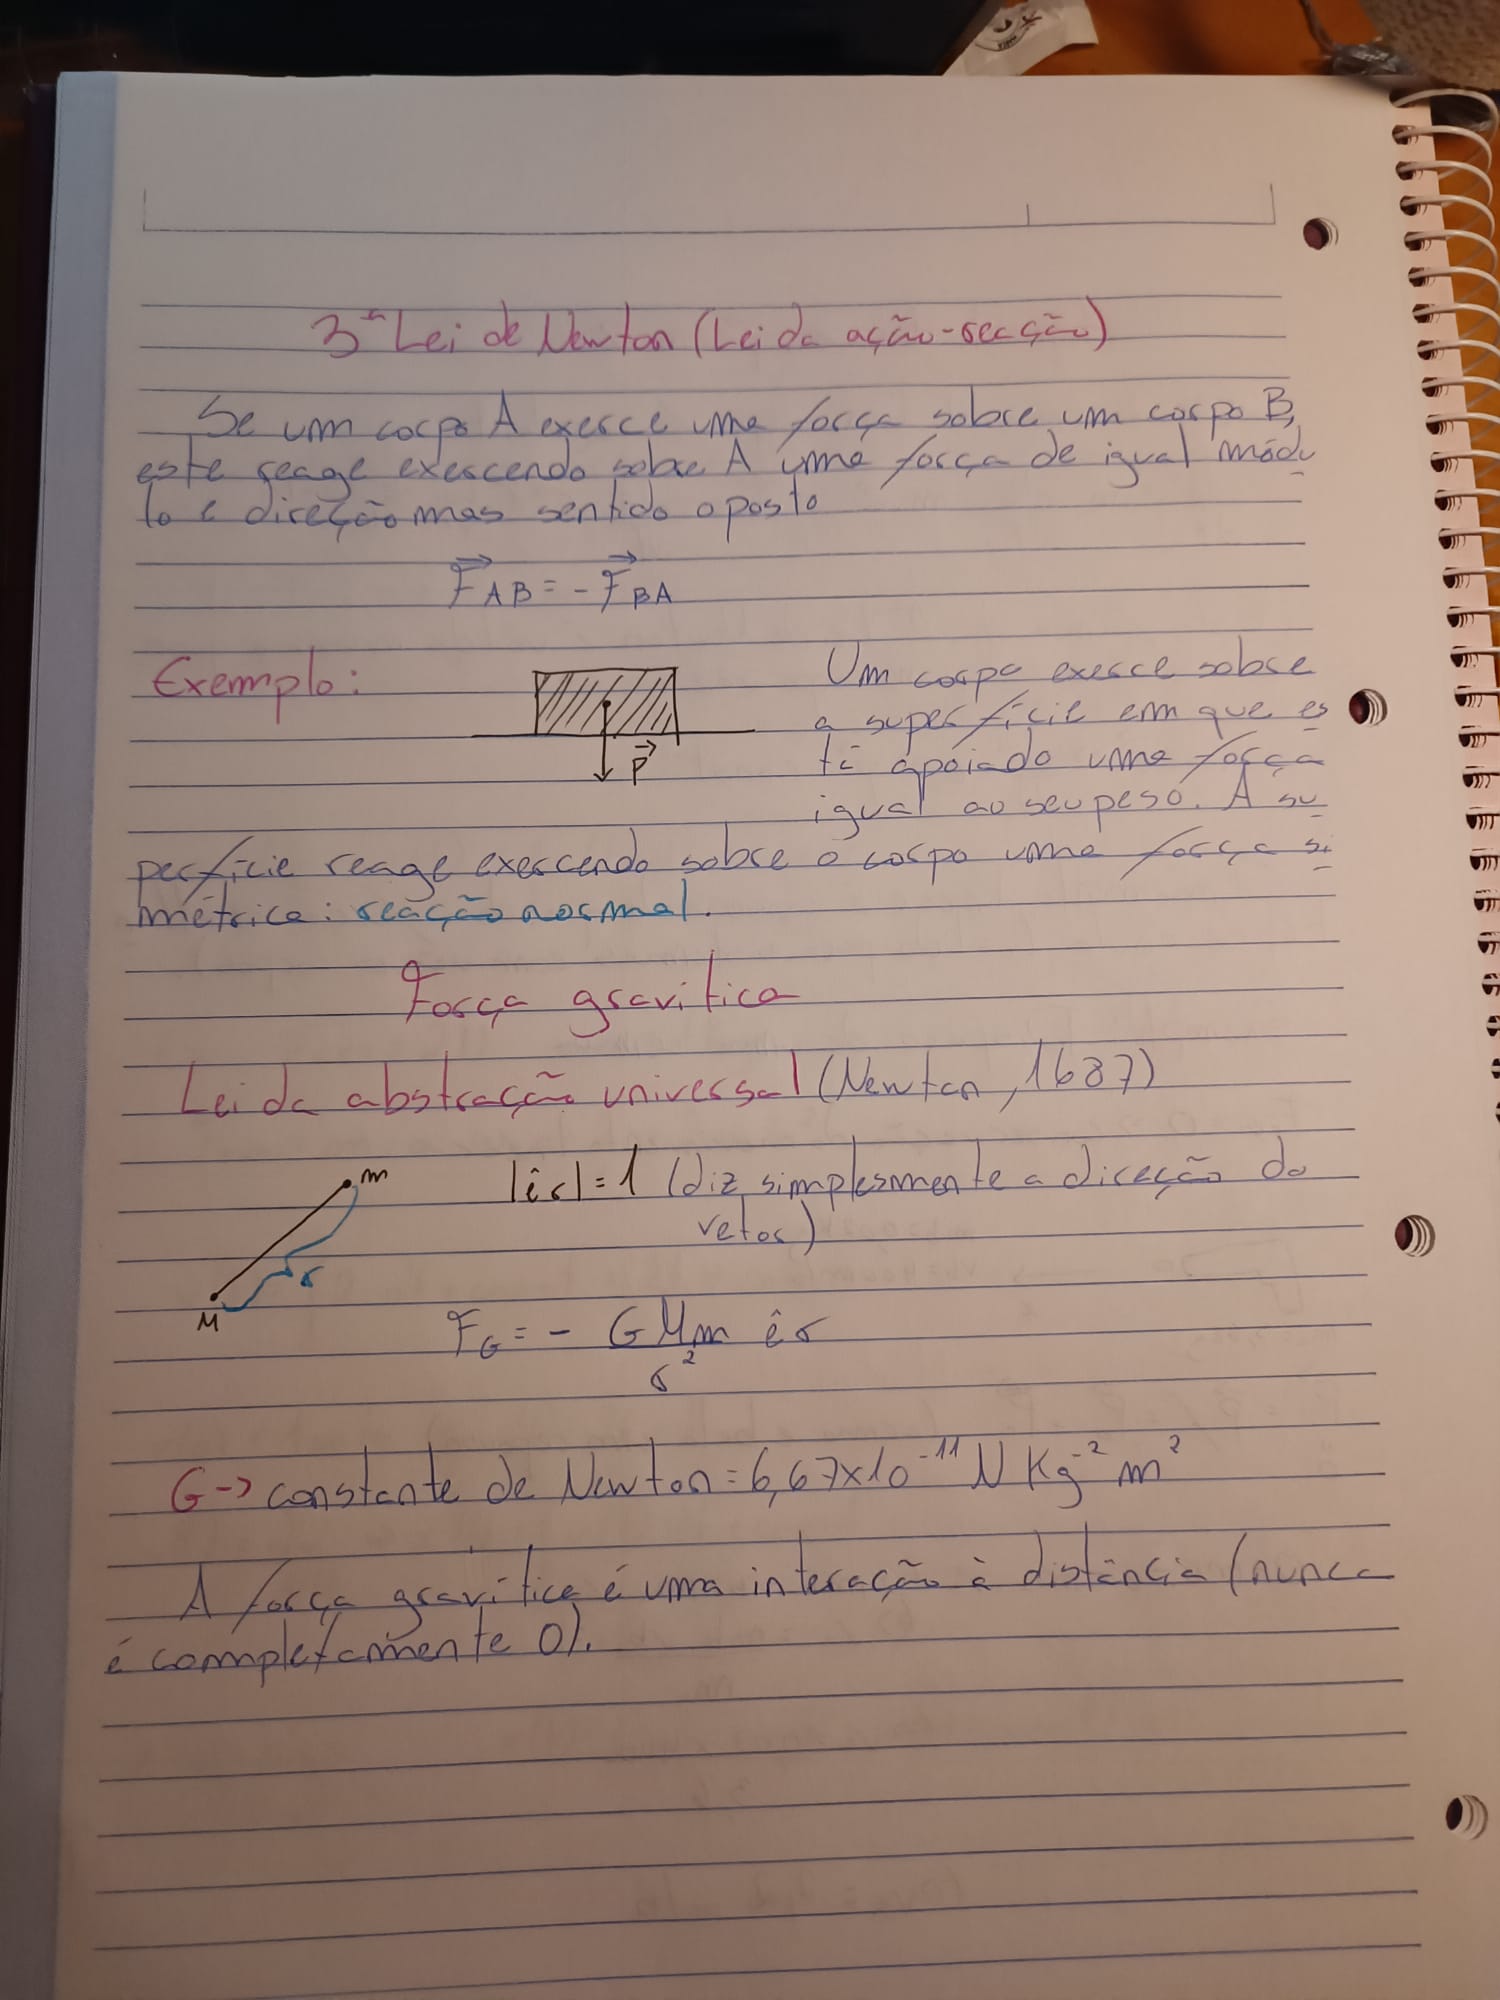 3ª Lei de Newton (Lei da ação-reação)
Se um corpo A exerce uma força sobre um corpo B,
este reage exercendo sobre A uma força de igual módu
lo e direção mas sentido oposto
F⃗AB = - F⃗BA
Exemplo:
P⃗
Um corpo exerce sobre
a superfície em que es
tá apoiado uma força
igual ao seu peso. A su
perfície reage exercendo sobre o corpo uma força si
métrica: reação normal.
Força gravítica
Lei da abstração universal (Newton, 1687)
m
r
M
|êr| = 1 (diz simplesmente a direção do
vetor)
FG = - GMm êr
r²
G -> constante de Newton = 6,67x10⁻¹¹ N Kg⁻² m²
A força gravítica é uma interação à distância (nunca
é completamente 0).